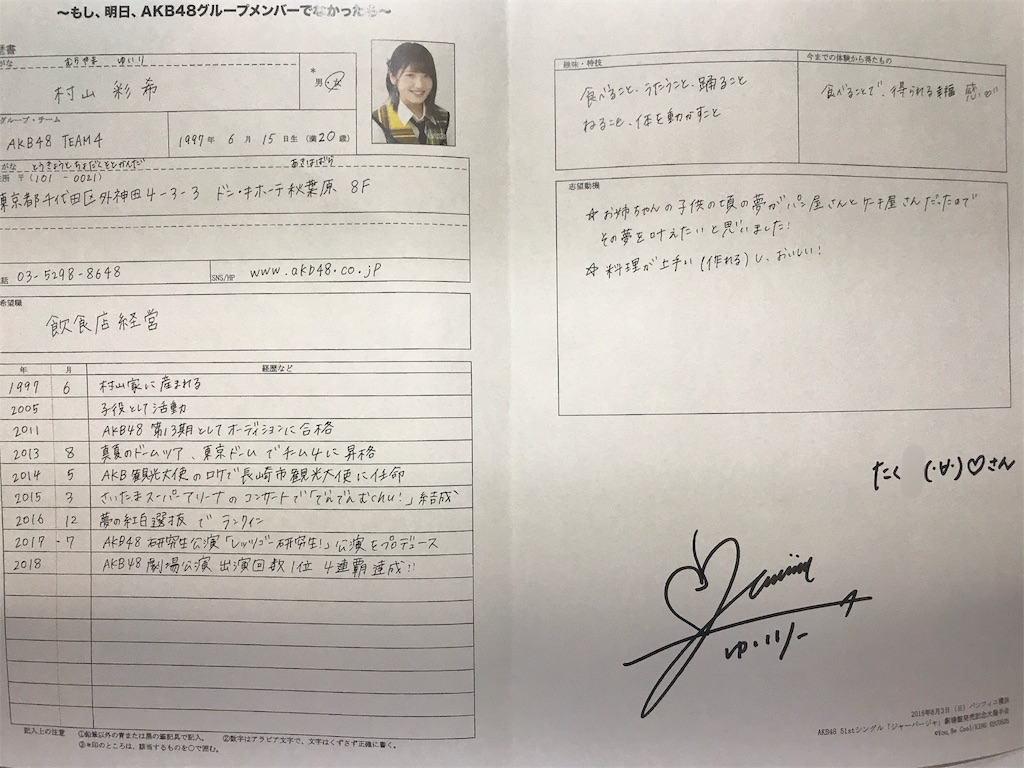 〜もし、明日、AKB48グループメンバーでなかったら〜
歴書
がな むらやま ゆいり
村山 彩希
*
男・女
グループ・チーム
AKB48 TEAM4
1997年 6月 15日生 (満20歳)
がな とうきょうとちよだくそとかんだ あきはばら
住所 〒(101 - 0021)
東京都千代田区外神田4-3-3 ドン・キホーテ秋葉原 8F
電話 03-5298-8648
SNS/HP www.akb48.co.jp
希望職
飲食店経営
年 月 経歴など
1997 6 村山家に産まれる
2005 子役として活動
2011 AKB48 第13期としてオーディションに合格
2013 8 真夏のドームツアー、東京ドームでチーム4に昇格
2014 5 AKB観光大使のロケで長崎市観光大使に任命
2015 3 さいたまスーパーアリーナのコンサートで「でんでんむchu!」結成
2016 12 夢の紅白選抜でランクイン
2017 7 AKB48 研究生公演「レッツゴー研究生!」公演をプロデュース
2018 AKB48 劇場公演 出演回数1位 4連覇達成!!
記入上の注意 ①鉛筆以外の青または黒の筆記具で記入。 ②数字はアラビア文字で、文字はくずさず正確に書く。
③※印のところは、該当するものを○で囲む。
趣味・特技
食べること、うたうこと、踊ること
ねること、体を動かすこと
今までの体験から得たもの
食べることで、得られる幸福感
志望動機
☆お姉ちゃんの子供の頃の夢がパン屋さんとケーキ屋さんだったので
その夢を叶えたいと思いました!
☆料理が上手い(作れる)し、おいしい!
たく (・∀・)♡さん
ゆいりー
2018年6月3日（日）パシフィコ横浜
AKB48 51stシングル「ジャーバージャ」劇場盤発売記念大握手会
©You, Be Cool!/KING RECORDS